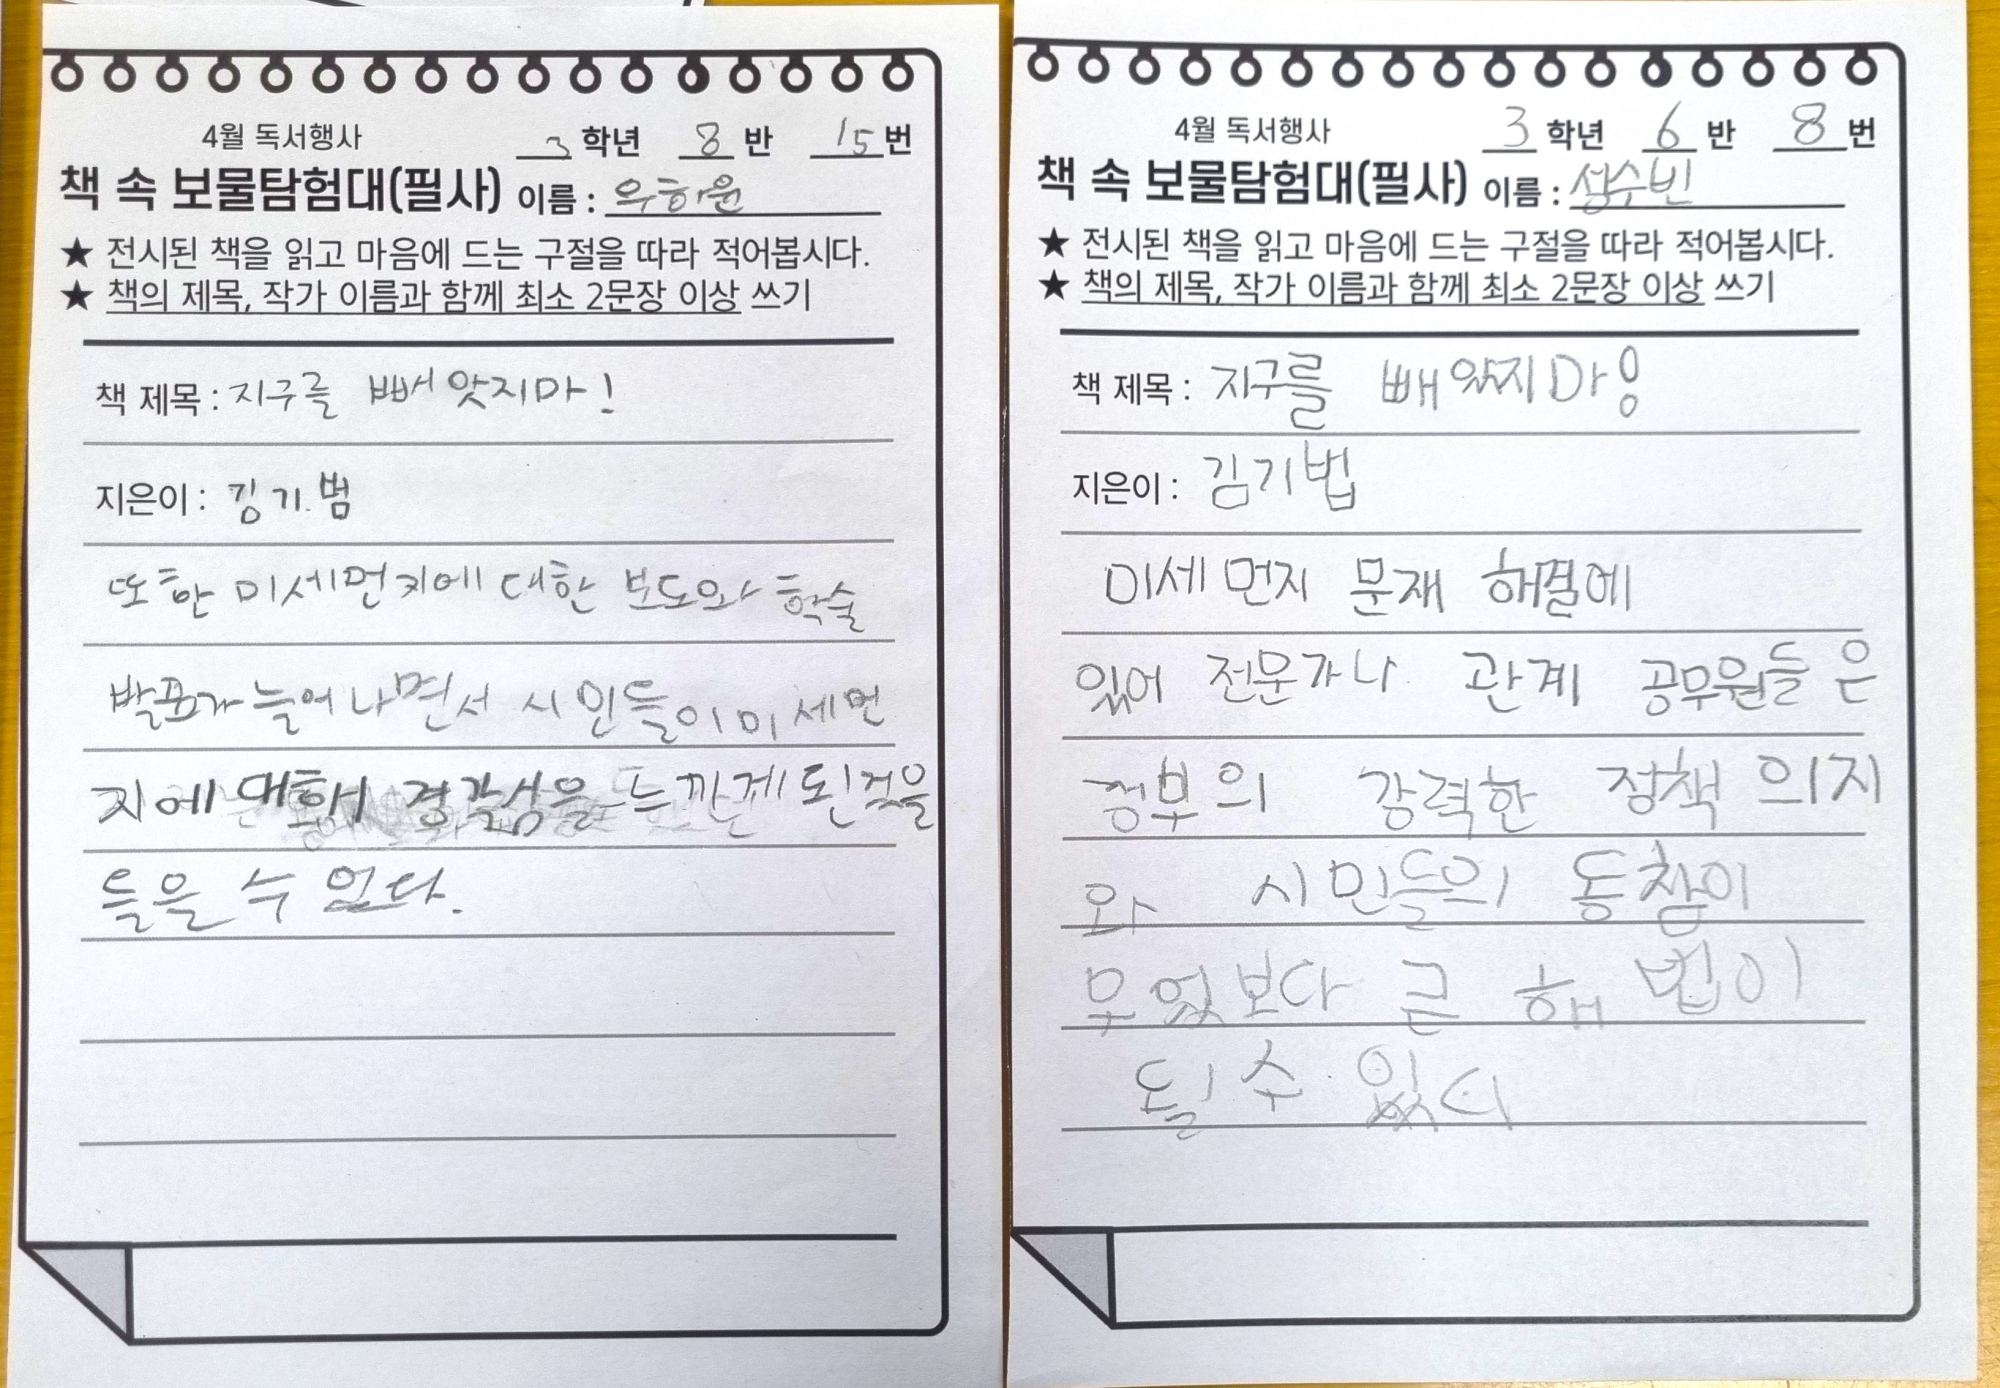 4월 독서행사
3 학년 8 반 15번
책 속 보물탐험대(필사) 이름 : 우하윤
★ 전시된 책을 읽고 마음에 드는 구절을 따라 적어봅시다.
★ 책의 제목, 작가 이름과 함께 최소 2문장 이상 쓰기
책 제목 : 지구를 빼앗지마!
지은이 : 김기범
또한 미세먼지에 대한 보도와 학술
발표가 늘어나면서 시민들이 미세먼
지에 대해 경각심을 느끼게 된것을
들을 수 있다.
4월 독서행사
3 학년 6 반 8 번
책 속 보물탐험대(필사) 이름 : 성수빈
★ 전시된 책을 읽고 마음에 드는 구절을 따라 적어봅시다.
★ 책의 제목, 작가 이름과 함께 최소 2문장 이상 쓰기
책 제목 : 지구를 빼앗지마!
지은이 : 김기법
미세먼지 문재 해결에
있어 전문가나 관계 공무원들은
정부의 강력한 정책 의지
와 시민들의 동참이
무엇보다 큰 해법이
될 수 있다